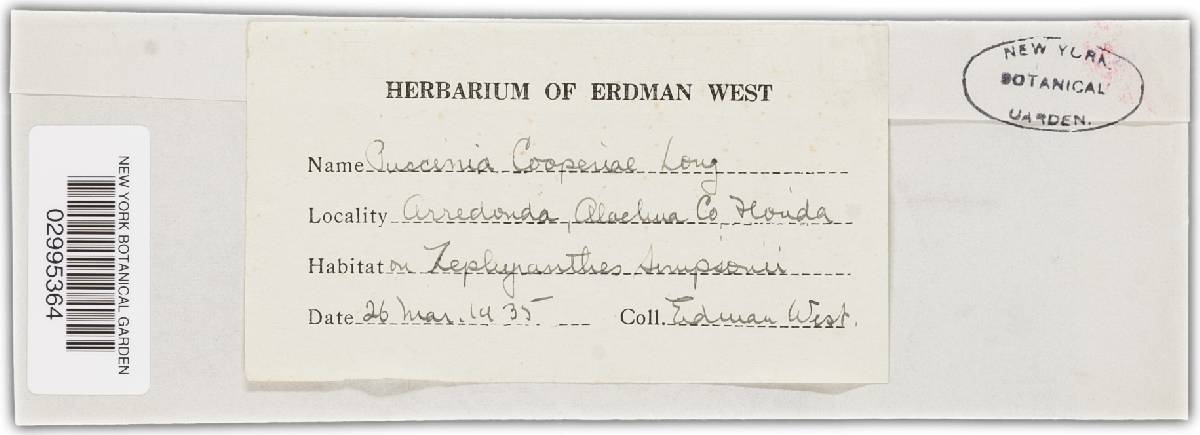 HERBARIUM OF ERDMAN WEST
Name Puccinia Cooperiae Long
Locality Arredonda, Alachua Co, Florida
Habitat on Zephyranthes simpsonii
Date 26 Mar. 1935 Coll. Erdman West.
NEW YORK
BOTANICAL
GARDEN.
NEW YORK BOTANICAL GARDEN
02995364